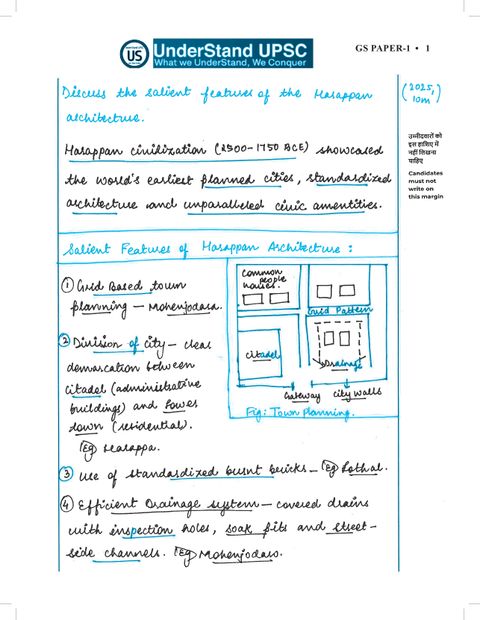 UnderStand UPSC
What we UnderStand, We Conquer
GS PAPER-1 • 1
Discuss the salient features of the Harappan
architecture.
(2025, 10m)
उम्मीदवारों को
इस हाशिए में
नहीं लिखना
चाहिए
Candidates
must not
write on
this margin
Harappan civilization (2500-1750 BCE) showcased
the world's earliest planned cities, standardized
architecture and unparalleled civic amentities.
Salient Features of Harappan Architecture :
① Grid Based town
planning – Mohenjodaro.
② Division of city – clear
demarcation between
citadel (administrative
buildings) and lower
town (residential).
Eg Harappa.
common
people
houses.
Grid Pattern
citadel
Drainage
Gateway
city walls
Fig: Town Planning.
③ Use of standardized burnt bricks – Eg Lothal.
④ Efficient Drainage system – covered drains
with inspection holes, soak pits and street-
side channels. Eg Mohenjodaro.